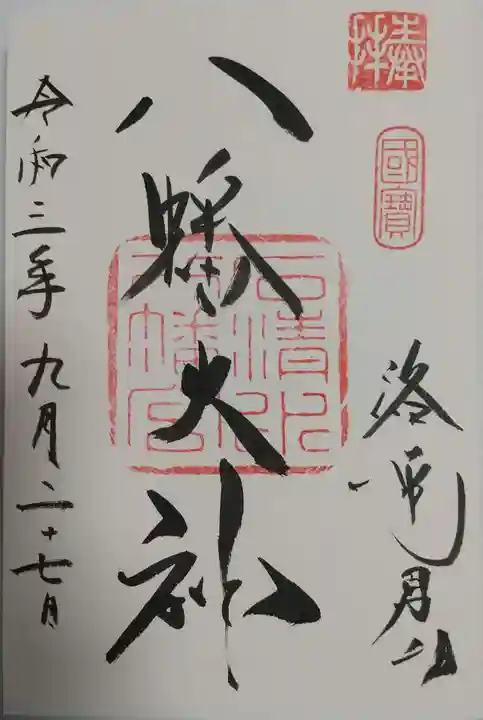 奉拝
國寶
八幡大神
石清水
八幡宮
令和三年九月二十七日